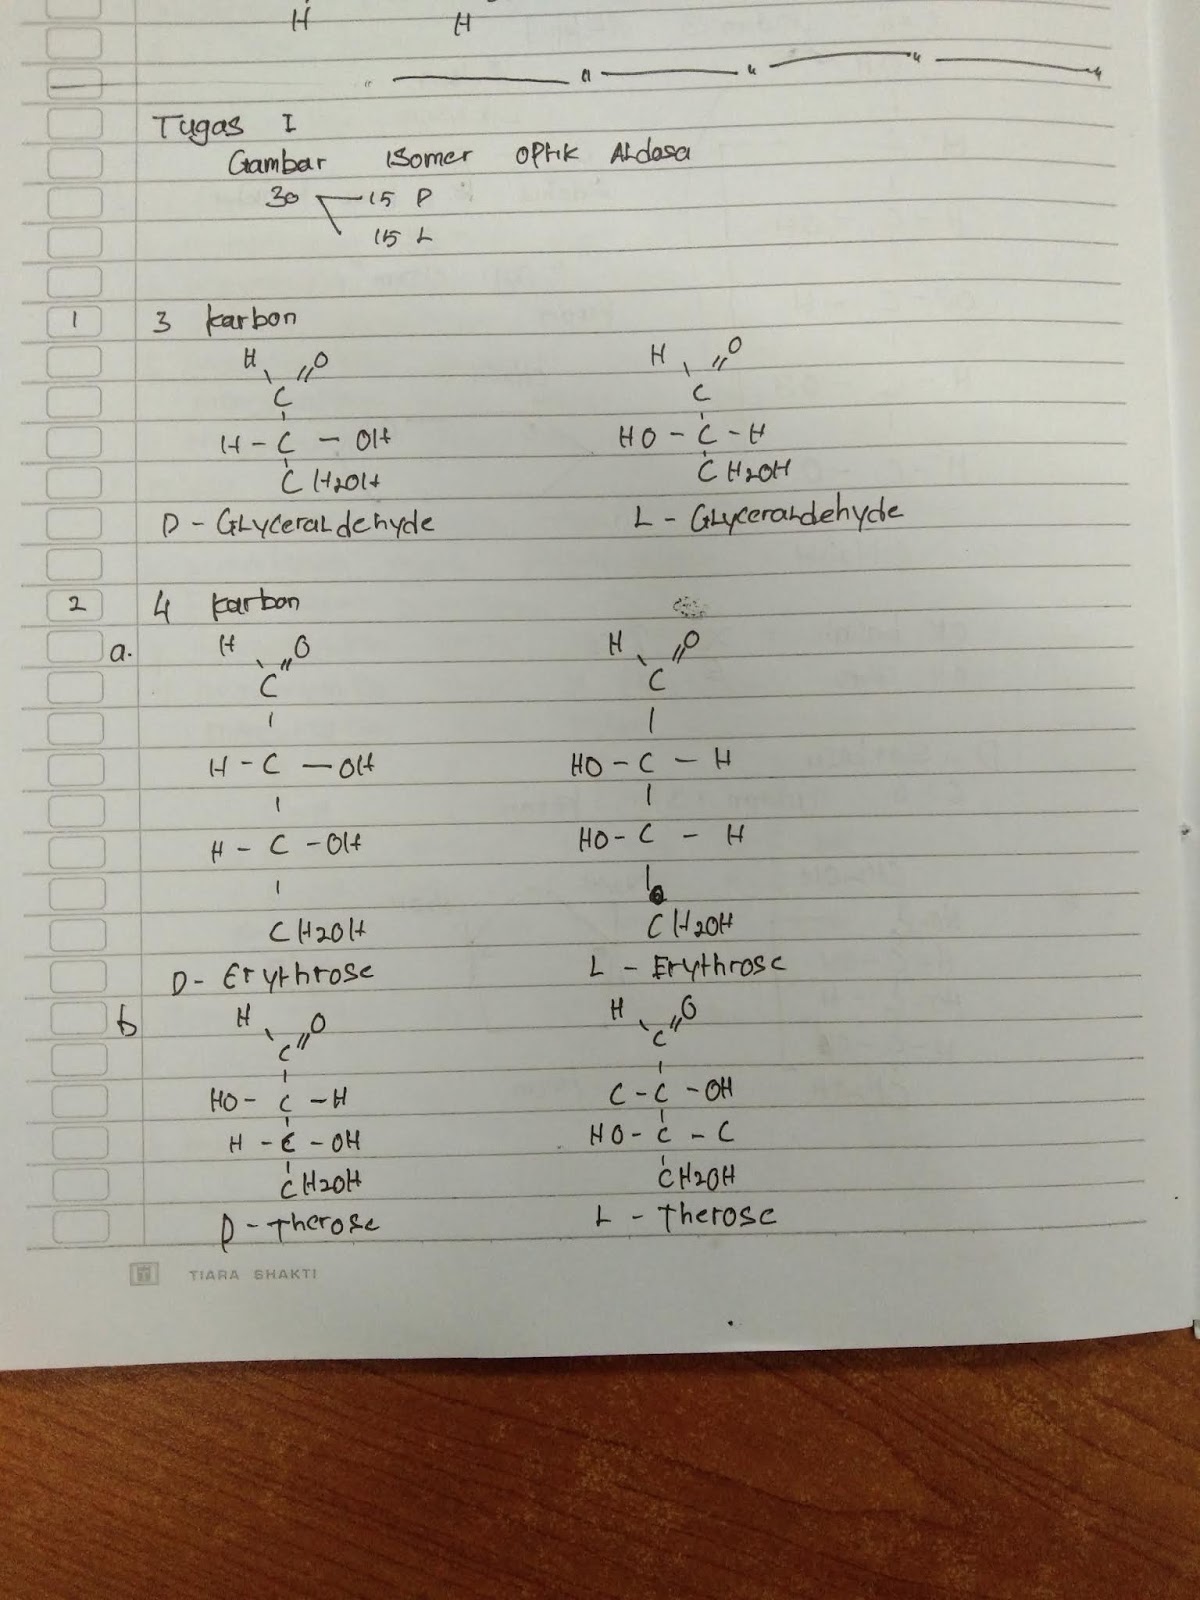 H H
Tugas I
Gambar Isomer Optik Aldosa
30 15 D
15 L
1 3 karbon
H O H O
C C
H - C - OH HO - C - H
CH2OH CH2OH
D - Glyceraldehyde L - Glyceraldehyde
2 4 karbon
a. H O H O
C C
H - C - OH HO - C - H
H - C - OH HO - C - H
CH2OH CH2OH
D - Erythrose L - Erythrose
b H O H O
C C
HO - C - H C - C - OH
H - C - OH HO - C - C
CH2OH CH2OH
D - Therose L - Therose
TIARA SHAKTI